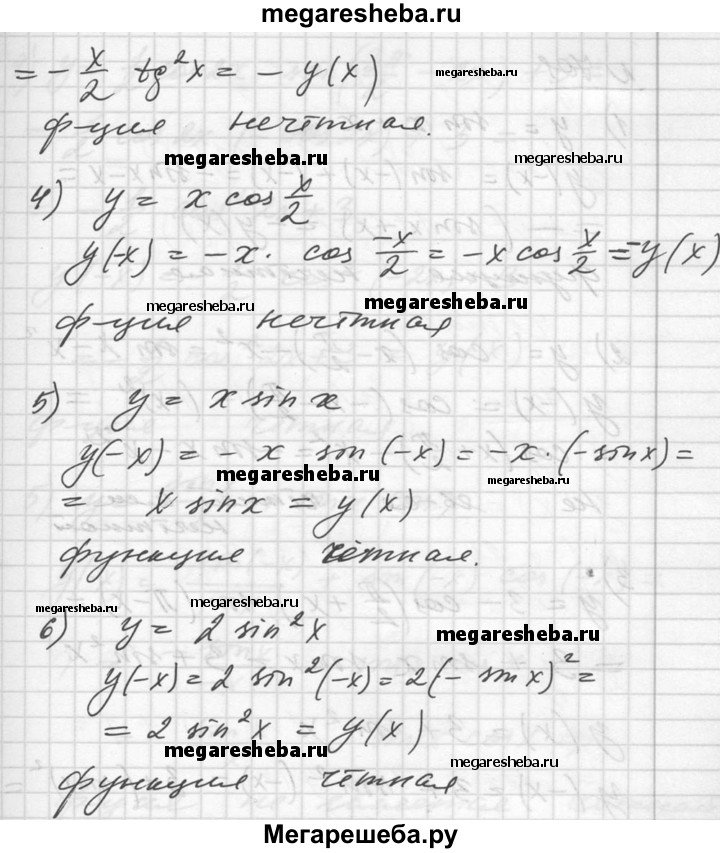 megaresheba.ru
= - x/2 tg²x = - y(x)
megaresheba.ru
ф-ция нечётная.
megaresheba.ru
megaresheba.ru
4) y = x cos x/2
y(-x) = -x · cos -x/2 = -x cos x/2 = -y(x)
megaresheba.ru
megaresheba.ru
ф-ция нечётная
5) y = x sin x
y(-x) = - x = sin (-x) = -x · (-sin x) =
megaresheba.ru
megaresheba.ru
= x sin x = y(x)
функция чётная.
megaresheba.ru
megaresheba.ru
6) y = 2 sin²x
megaresheba.ru
y(-x) = 2 sin²(-x) = 2(- sin x)² =
= 2 sin²x = y(x)
megaresheba.ru
megaresheba.ru
функция чётная
Мегарешеба.ру